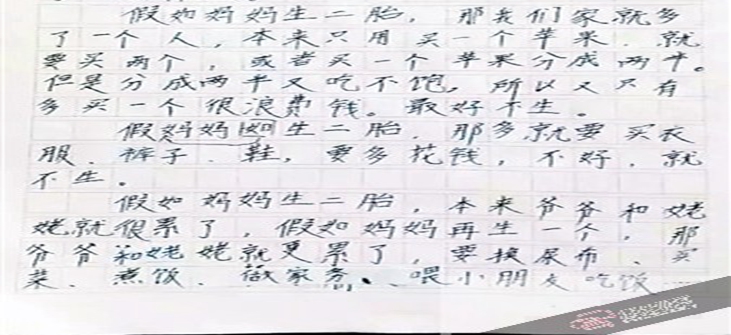 假如妈妈生二胎，那我们家就多
了一个人，本来只用买一个苹果，就
要买两个，或者买一个苹果分成两半。
但是分成两半又吃不饱，所以又只有
多买一个很浪费钱。最好不生。
假妈妈如生二胎，那多就要买衣
服、裤子、鞋，要多花钱，不好，就
不生。
假如妈妈生二胎，本来爷爷和姥
姥就很累了，假如妈妈再生一个，那
爷爷和姥姥就更累了，要换尿布、买
菜、煮饭、做家务、喂小朋友吃饭……